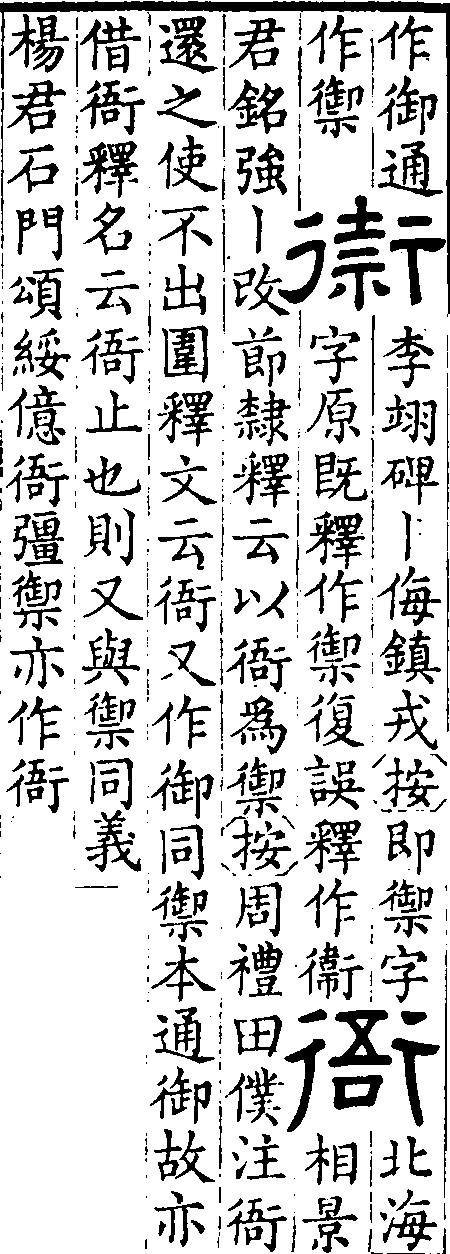 作御通
作禦
李翊碑丨侮鎮戎按即禦字
字原既釋作禦復誤釋作衞
衙
北海
相景
君銘強丨改節隸釋云以衙爲禦按周禮田僕注衙
還之使不出圍釋文云衙又作御同禦本通御故亦
借衙釋名云衙止也則又與禦同義
楊君石門頌綏億衙彊禦亦作衙